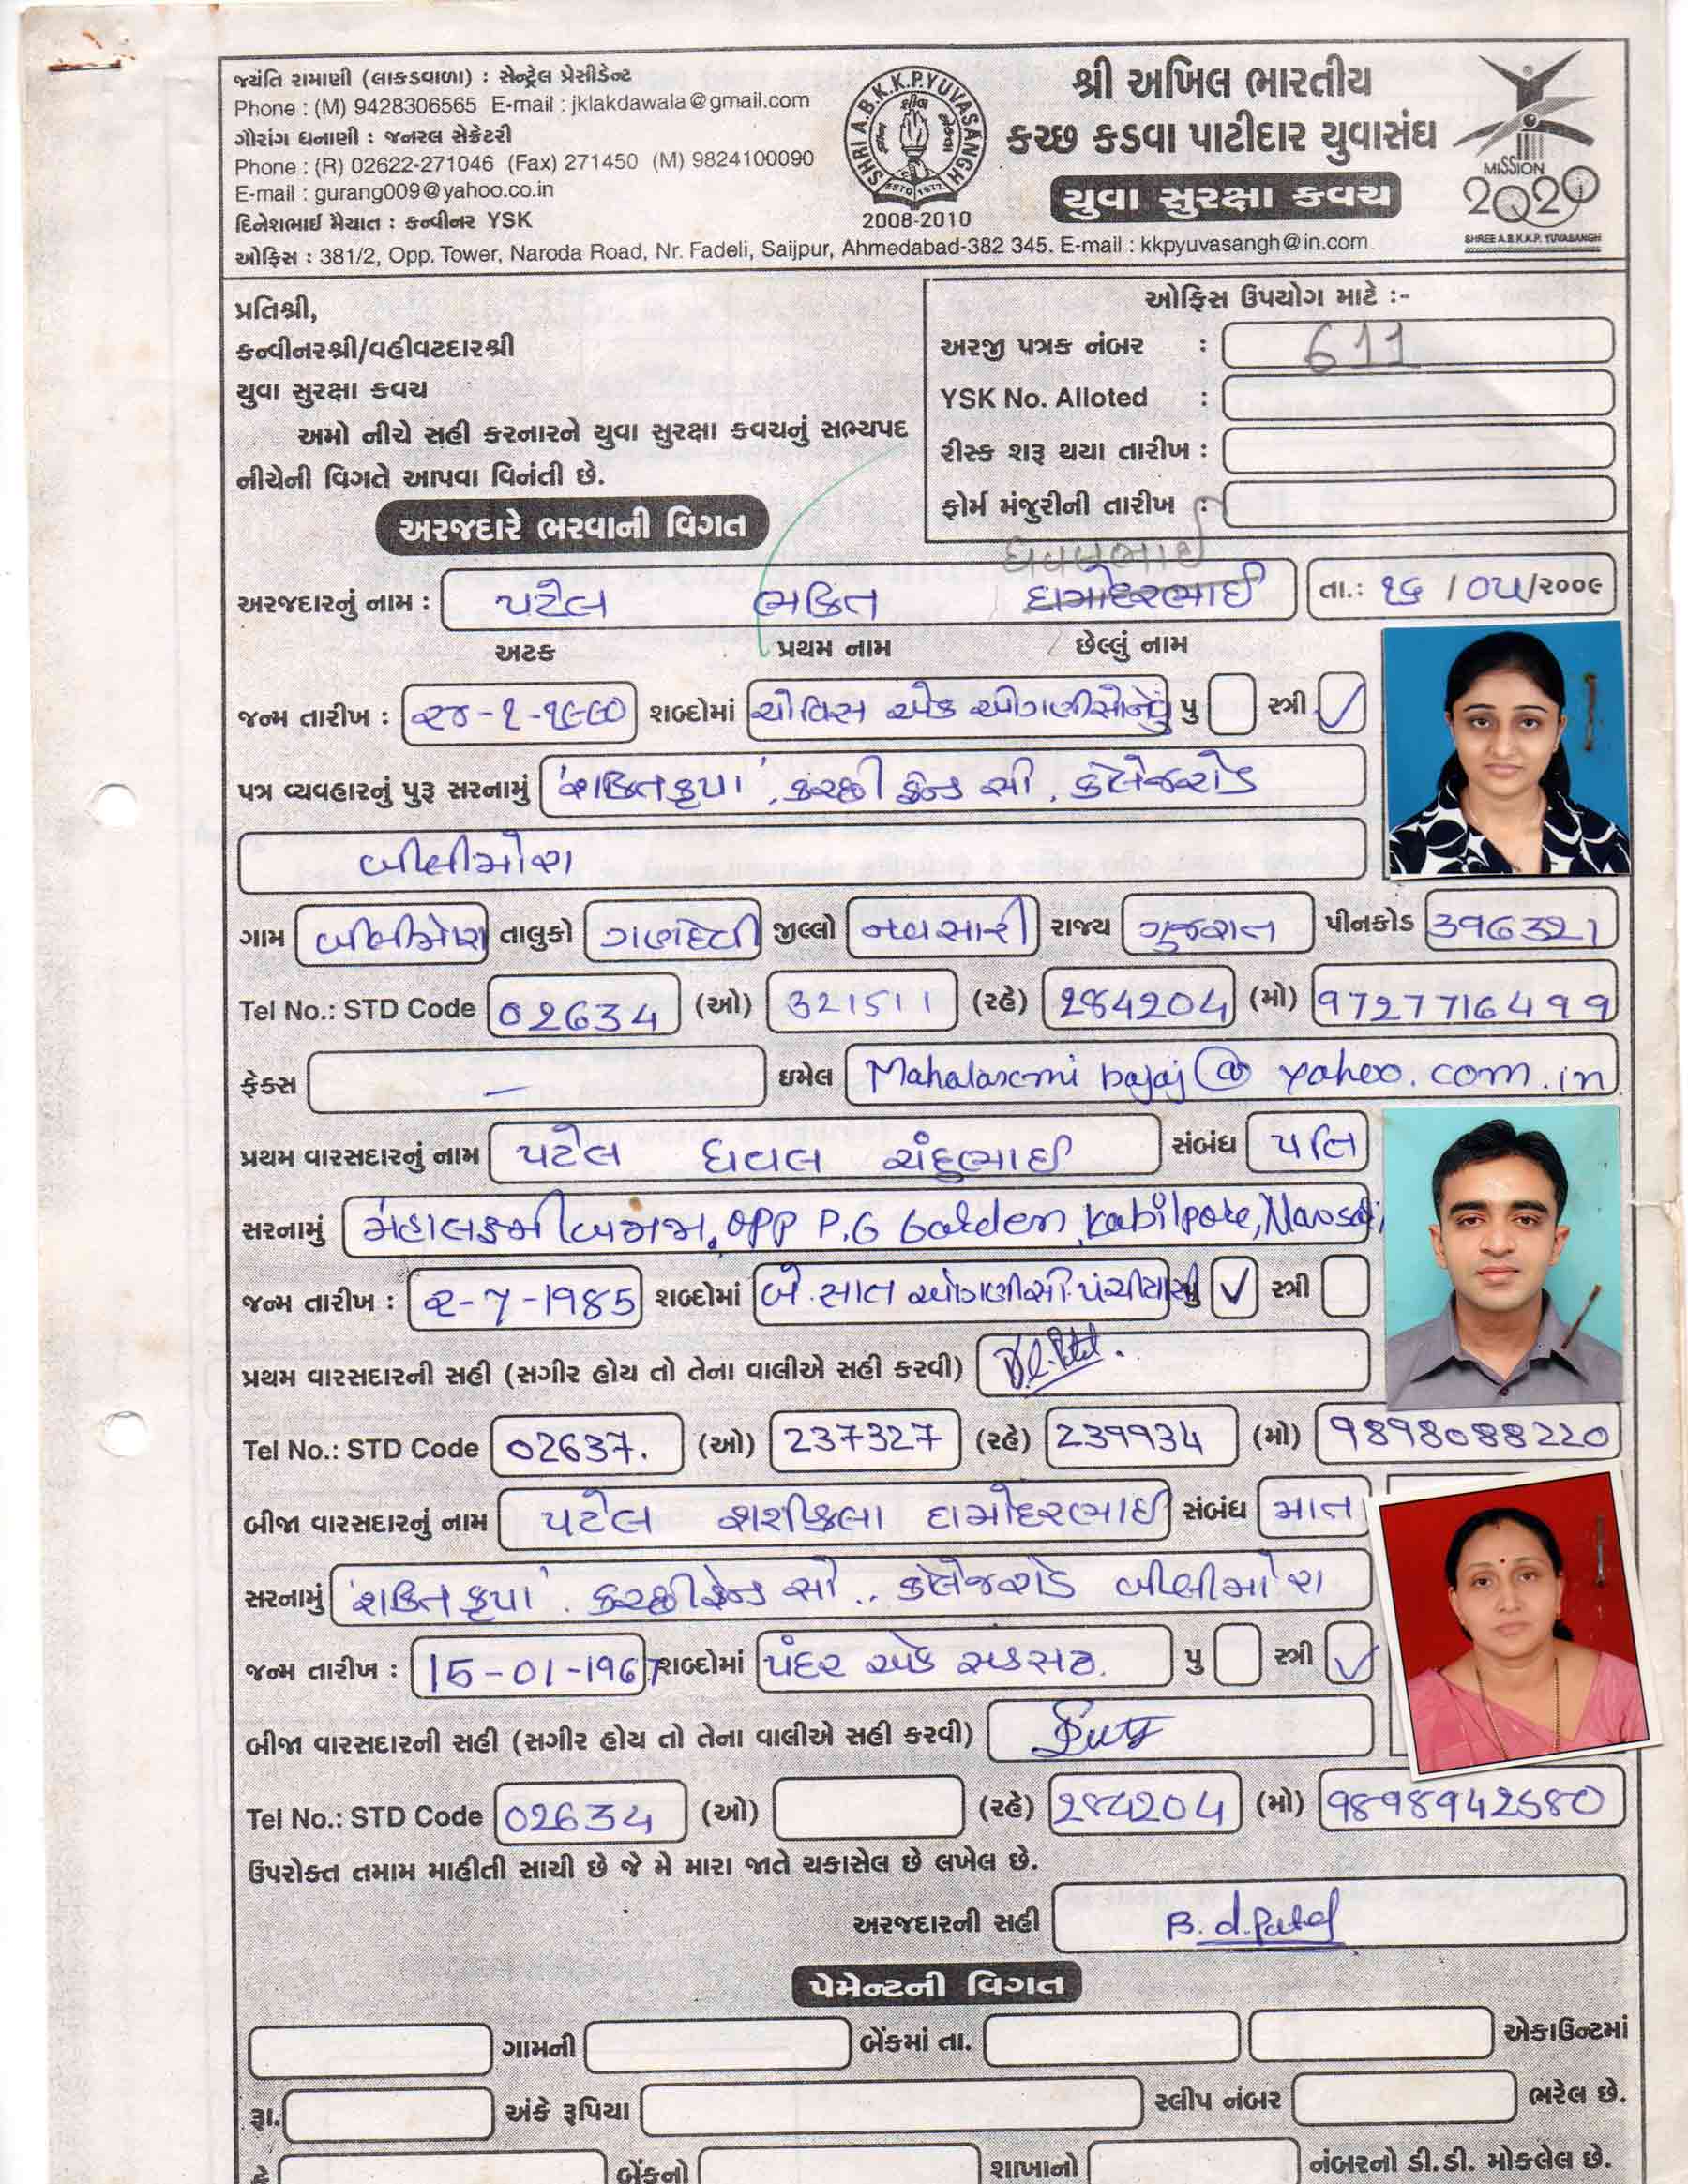 જયંતિ રામાણી (લાકડાવાળા) : સેન્ટ્રેલ પ્રેસીડેન્ટ
Phone : (M) 9428306565 E-mail : jklakdawala@gmail.com
ગૌરાંગ ધનાણી : જનરલ સેક્રેટરી
Phone : (R) 02622-271046 (Fax) 271450 (M) 9824100090
E-mail : gurang009@yahoo.co.in
દિનેશભાઈ મૈયાત : કન્વીનર YSK
SHRI A.B.K.K.P. YUVASANGH
ESTD 1977
2008-2010
શ્રી અખિલ ભારતીય
કચ્છ કડવા પાટીદાર યુવાસંઘ
યુવા સુરક્ષા કવચ
MISSION
2020
SHREE A.B.K.K.P. YUVASANGH
ઓફિસ : 381/2, Opp. Tower, Naroda Road, Nr. Fadeli, Saijpur, Ahmedabad-382 345. E-mail : kkpyuvasangh@in.com.
પ્રતિશ્રી,
કન્વીનરશ્રી/વહીવટદારશ્રી
યુવા સુરક્ષા કવચ
અમો નીચે સહી કરનારને યુવા સુરક્ષા કવચનું સભ્યપદ
નીચેની વિગતે આપવા વિનંતી છે.
ઓફિસ ઉપયોગ માટે :-
અરજી પત્રક નંબર : 611
YSK No. Alloted :
રીસ્ક શરૂ થયા તારીખ :
ફોર્મ મંજુરીની તારીખ :
અરજદારે ભરવાની વિગત
ધવલભાઈ
અરજદારનું નામ : પટેલ ભકિત દામોદરભાઈ તા.: ૧૬ / ૦૫/૨૦૦૯
અટક પ્રથમ નામ છેલ્લું નામ
જન્મ તારીખ : ૨૪-૧-૧૯૯૦ શબ્દોમાં ચોવિસ એક ઓગણીસોનેવું પુ સ્ત્રી ✓
પત્ર વ્યવહારનું પુરૂ સરનામું 'શકિતકૃપા', કચ્છી ફ્રેન્ડ સો, કોલેજરોડ
બીલીમોરા
ગામ બીલીમોરા તાલુકો ગણદેવી જીલ્લો નવસારી રાજ્ય ગુજરાત પીનકોડ 396321
Tel No.: STD Code 02634 (ઓ) 321511 (રહે) 284204 (મો) 9727716499
ફેક્સ — ઇમેલ Mahalaxmi bajaj @ yahoo.com.in
પ્રથમ વારસદારનું નામ પટેલ ધવલ ચંદુભાઈ સંબંધ પતિ
સરનામું મહાલક્ષ્મી બજાજ, opp P.G Garden, Kabilpore, Navsari
જન્મ તારીખ : ૨-7-1985 શબ્દોમાં બે સાત ઓગણીસો પંચીયાસી પુ ✓ સ્ત્રી
પ્રથમ વારસદારની સહી (સગીર હોય તો તેના વાલીએ સહી કરવી)
Tel No.: STD Code 02637. (ઓ) 237327 (રહે) 239934 (મો) 9898088220
બીજા વારસદારનું નામ પટેલ શશીકલા દામોદરભાઈ સંબંધ માતા
સરનામું 'શકિતકૃપા', કચ્છી ફ્રેન્ડ સો., કોલેજરોડ બીલીમોરા
જન્મ તારીખ : 15-01-1967 શબ્દોમાં પંદર એક સડસઠ. પુ સ્ત્રી ✓
બીજા વારસદારની સહી (સગીર હોય તો તેના વાલીએ સહી કરવી)
Tel No.: STD Code 02634 (ઓ) (રહે) 284204 (મો) 9898942580
ઉપરોક્ત તમામ માહીતી સાચી છે જે મે મારા જાતે ચકાસેલ છે લખેલ છે.
અરજદારની સહી B.d.Patel
પેમેન્ટની વિગત
ગામની બેંકમાં તા. એકાઉન્ટમાં
રૂા. અંકે રૂપિયા સ્લીપ નંબર ભરેલ છે.
બેંકનો શાખાનો નંબરનો ડી.ડી. મોકલેલ છે.